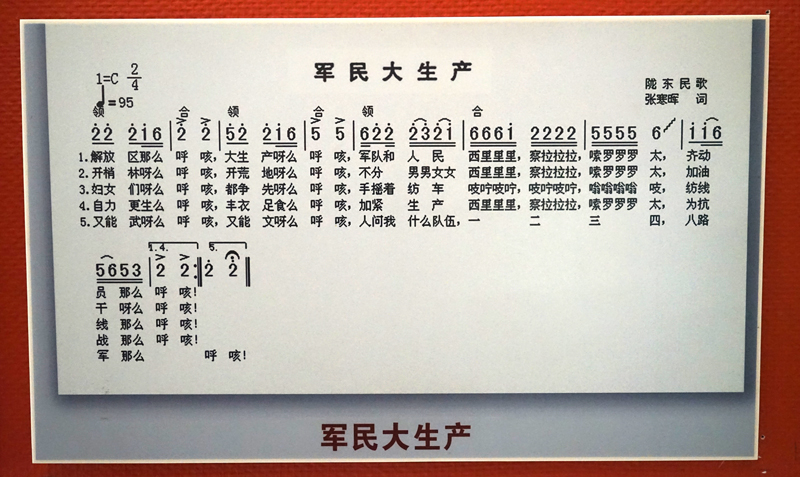 军民大生产
1=C 2/4
♩=95
陇东民歌
张寒晖 词
领 合 领 合 领 合
2 2 2 1 6 | 2 2 | 5 2 2 1 6 | 5 5 | 6 2 2 2 3 2 1 | 6 6 6 1 2 2 2 2 | 5 5 5 5 6 | 1 1 6
1.解放 区那么 呼 咳,大生 产呀么 呼 咳,军队和 人 民 西里里里,察拉拉拉,嗦罗罗罗 太, 齐动
2.开梢 林呀么 呼 咳,开荒 地呀么 呼 咳,不分 男男女女 西里里里,察拉拉拉,嗦罗罗罗 太, 加油
3.妇女 们呀么 呼 咳,都争 先呀么 呼 咳,手摇着 纺 车 吱咛吱咛,吱咛吱咛,嗡嗡嗡嗡 吱, 纺线
4.自力 更生么 呼 咳,丰衣 足食么 呼 咳,加紧 生 产 西里里里,察拉拉拉,嗦罗罗罗 太, 为抗
5.又能 武呀么 呼 咳,又能 文呀么 呼 咳,人问我 什么队伍,一 二 三 四, 八路
1.4. 5.
5 6 5 3 | 2 2 :| 2 2
员 那么 呼 咳!
干 呀么 呼 咳!
线 那么 呼 咳!
战 那么 呼 咳!
军 那么 呼 咳!
军民大生产